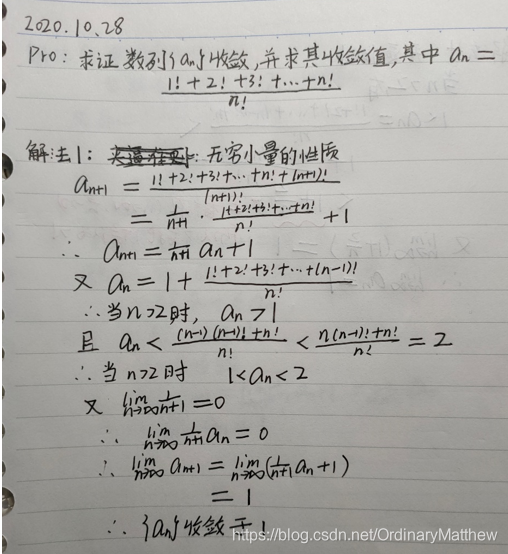 2020.10.28
Pro: 求证数列{an}收敛,并求其收敛值,其中 an =
1!+2!+3!+…+n!
n!
解法1: 无穷小量的性质
an+1 = 1!+2!+3!+…+n!+(n+1)! / (n+1)!
= 1/n+1 · 1!+2!+3!+…+n! / n! + 1
∴ an+1 = 1/n+1 an + 1
又 an = 1 + 1!+2!+3!+…+(n-1)! / n!
∴ 当n>2时, an > 1
且 an < (n-1)(n-1)!+n! / n! < n(n-1)!+n! / n! = 2
∴ 当n>2时 1<an<2
又 lim n→∞ 1/n+1 = 0
∴ lim n→∞ 1/n+1 an = 0
∴ lim n→∞ an+1 = lim n→∞ (1/n+1 an + 1)
= 1
∴ {an}收敛于1
https://blog.csdn.net/OrdinaryMatthew